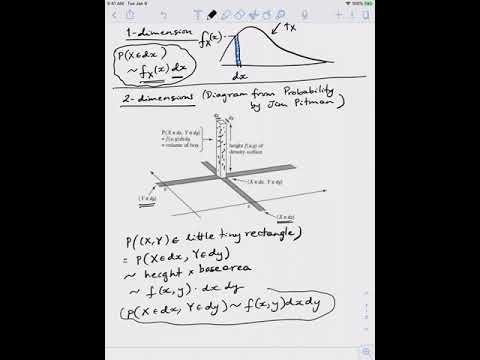 9:41 AM Tue Jan 9
1-dimension
f_X(x)
f_X
P(X∈dx)
~ f_X(x) dx
dx
2-dimensions (Diagram from Probability
by Jim Pitman)
P(X∈dx, Y∈dy)
= f(x,y)dxdy
= volume of box
height f(x,y) of
density surface
(Y∈dy)
(X∈dx, Y∈dy)
(X∈dx)
P((X,Y)∈ little tiny rectangle)
= P(X∈dx, Y∈dy)
~ height × base area
~ f(x,y) · dx dy
P(X∈dx, Y∈dy) ~ f(x,y)dxdy